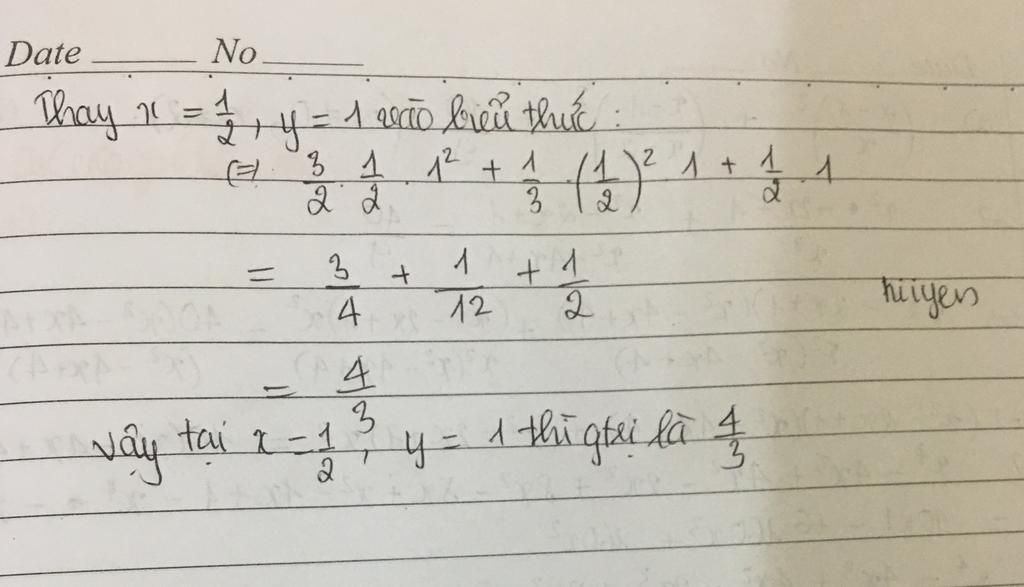 Date ______ No ______
Thay x = 1/2, y = 1 vào biểu thức :
(=) 3/2 . 1/2 . 1² + 1/3 . (1/2)² 1 + 1/2 . 1
= 3/4 + 1/12 + 1/2
= 4/3
Vậy tại x = 1/2, y = 1 thì gtrị là 4/3